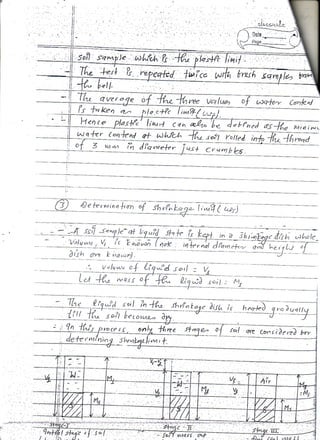 classmate
Date
Page
soil sample which is the plastic limit.
- The test is repeated twice with fresh samples from
the ball.
- The average of the three values of water content
is taken as plastic limit (wp).
- Hence plastic limit can also be defined as the minimum
water content at which the soil rolled into the thread
of 3 mm in diameter just crumbles.
③ Determination of Shrinkage limit (ws)
- A soil sample at liquid state is kept in a shrinkage dish whole
volume, V₁ is known (note internal diameter and height of
dish are known).
∴ volume of liquid soil = V₁
Let the mass of the liquid soil = M₁
- The liquid soil in the shrinkage dish is heated gradually
till the soil becomes dry.
∴ In this process, only three stages of soil are considered for
determining shrinkage limit.
V₁ W M₁ Ms
W S
Air S Ms
stage-I stage-II stage III
Initial stage of soil